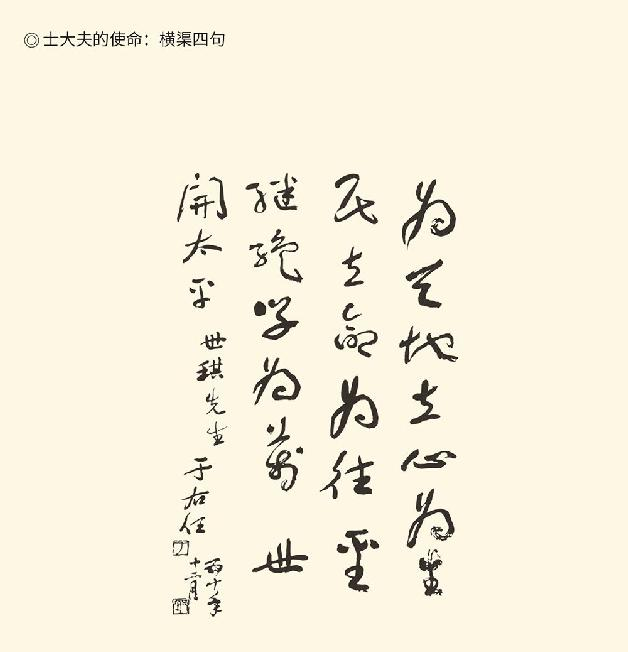 ◎ 士大夫的使命：横渠四句
为天地立心为生
民立命为往圣
继绝学为万世
開太平
世琪先生
于右任
五十年
十二月